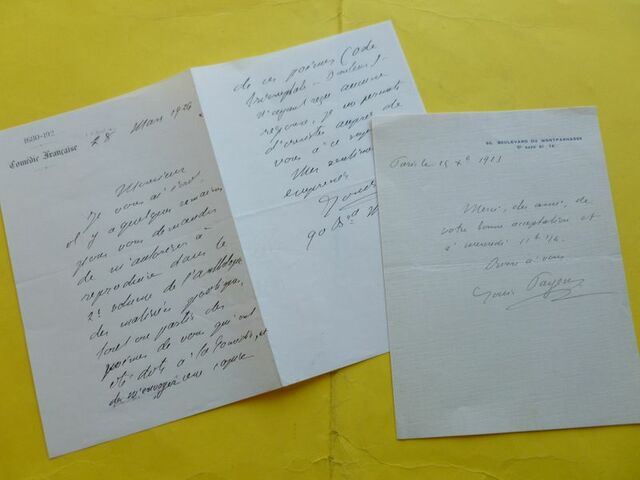 1680-192
Comédie Française
28 Mars 1926
Monsieur
Je vous ai écrit
il y a quelques semaines
pour vous demander
de m'autoriser à
reproduire dans le
2e volume de l'anthologie
des matinées poétiques,
tout ou partie des
poèmes de vous qu'ont
été dits à la Comédie, et
de m'envoyer une copie
de ces poèmes (Ode
N'ayant reçu aucune
réponse, je me permets
d'insister auprès de
vous à ce
Mes sentiments
empressés
Louis
90 Bd
90, BOULEVARD DU MONTPARNASSE
Paris le 15 Xe 1921
Merci, cher ami, de
votre bonne acceptation et
à mercredi 11h 1/2.
Bien à vous
Louis Payen